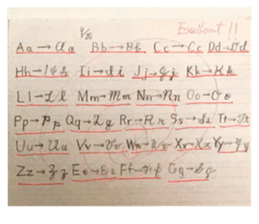 Excellent!!
Aa→Aa Bb→Bb Cc→Cc Dd→Dd
Hh→Hh Ii→Ii Jj→Jj Kk→Kk
Ll→Ll Mm→Mm Nn→Nn Oo→Oo
Pp→Pp Qq→Qq Rr→Rr Ss→Ss Tt→Tt
Uu→Uu Vv→Vv Ww→Ww Xx→Xx Yy→Yy
Zz→Zz Ee→Ee Ff→Ff Gg→Gg